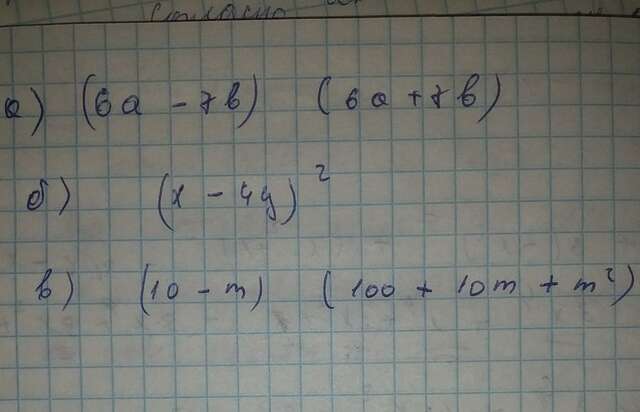 Согласно
а) (6a - 7b) (6a + 7b)
б) (x - 4y)²
в) (10 - m) (100 + 10m + m²)